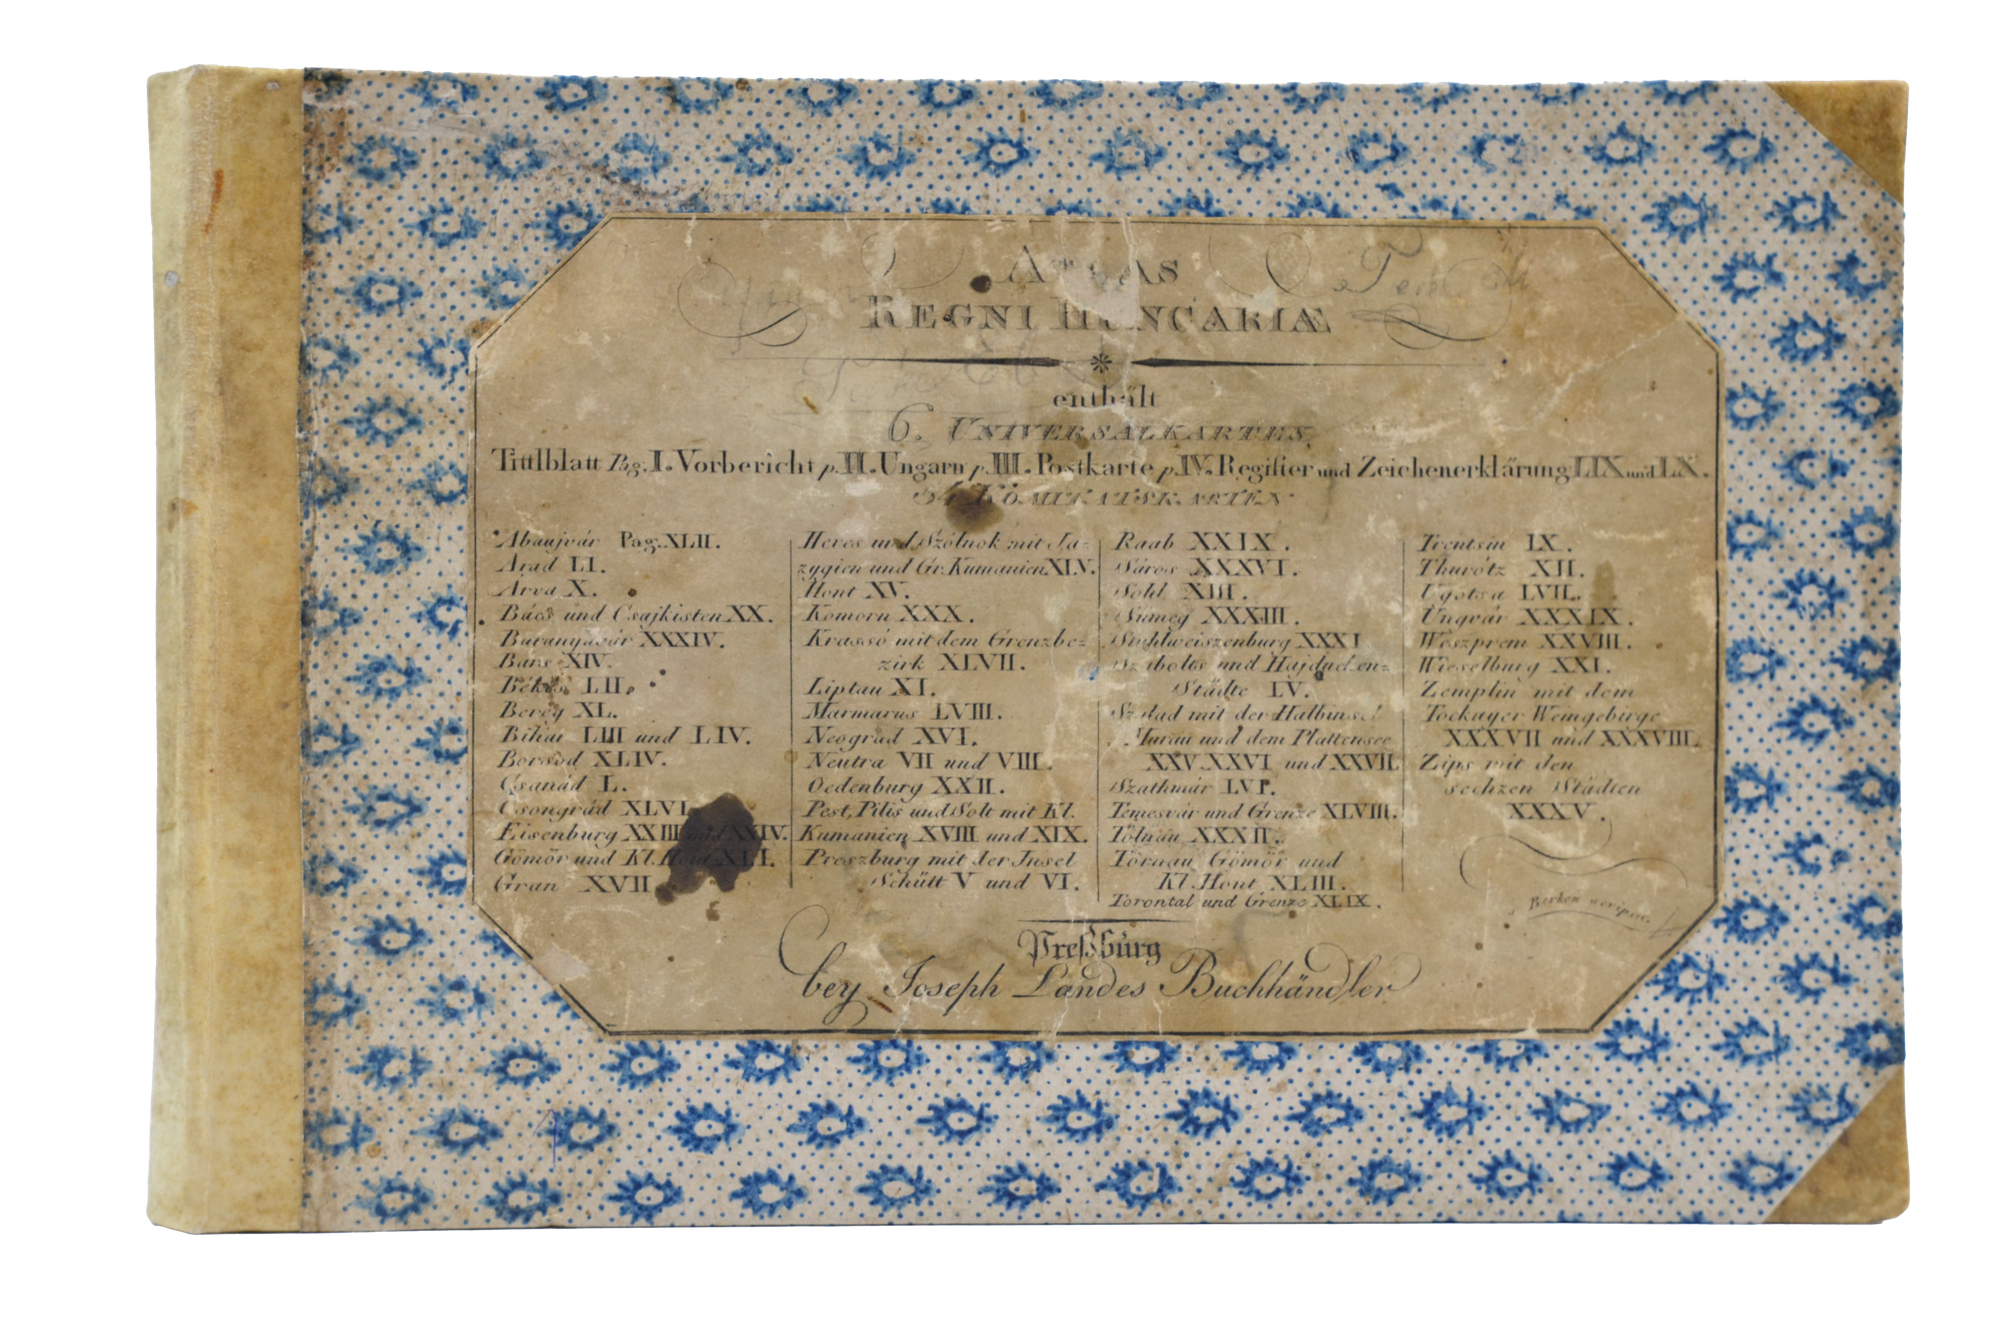 ATLAS
REGNI HUNGARIÆ
enthält
6. UNIVERSALKARTEN,
Tittlblatt Pag. I. Vorbericht p. II. Ungarn p. III. Postkarte p. IV. Regiſter und Zeichenerklärung LIX und LX.
54 KOMITATSKARTEN
Abaujvár Pag. XLII.
Arad LI.
Arva X.
Bács und Csajkisten XX.
Baranyavár XXXIV.
Bars XIV.
Békés LII.
Bereg XL.
Bihar LIII und LIV.
Borsod XLIV.
Csanád L.
Csongrád XLVI.
Eisenburg XXIII und XXIV.
Gömör und Kl. Hont XLI.
Gran XVII
Heves und Szólnok mit Ja=
zygien und Gr. Kumanien XLV.
Hont XV.
Komorn XXX.
Krassó mit dem Grenzbe=
zirk XLVII.
Liptau XI.
Marmarus LVIII.
Neograd XVI.
Neutra VII und VIII.
Oedenburg XXII.
Pest, Pilis und Solt mit Kl.
Kumanien XVIII und XIX.
Preszburg mit der Insel
Schütt V und VI.
Raab XXIX.
Sáros XXXVI.
Sohl XIII.
Sümeg XXXIII.
Stuhlweiszenburg XXXI
Szabolts und Hajducken=
Städte LV.
Szalad mit der Halbinsel
Murau und dem Plattensee
XXV. XXVI und XXVII.
Szathmár LVI.
Temesvár und Grenze XLVIII.
Tolnau XXXII.
Tornau, Gömör und
Kl. Hont XLIII.
Torontal und Grenze XLIX.
Trentsin IX.
Thurótz XII.
Ugotsa LVII.
Ungvár XXXIX.
Weszprem XXVIII.
Wieselburg XXI.
Zemplin mit dem
Tockayer Weingebirge
XXXVII und XXXVIII.
Zips mit den
sechzen Städten
XXXV.
Berken scripsit.
Preßburg
bey Joseph Landes Buchhändler